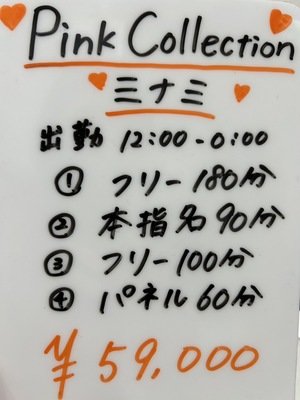 Pink Collection
ミナミ
出勤 12:00-0:00
① フリー 180分
② 本指名 90分
③ フリー 100分
④ パネル 60分
¥59,000